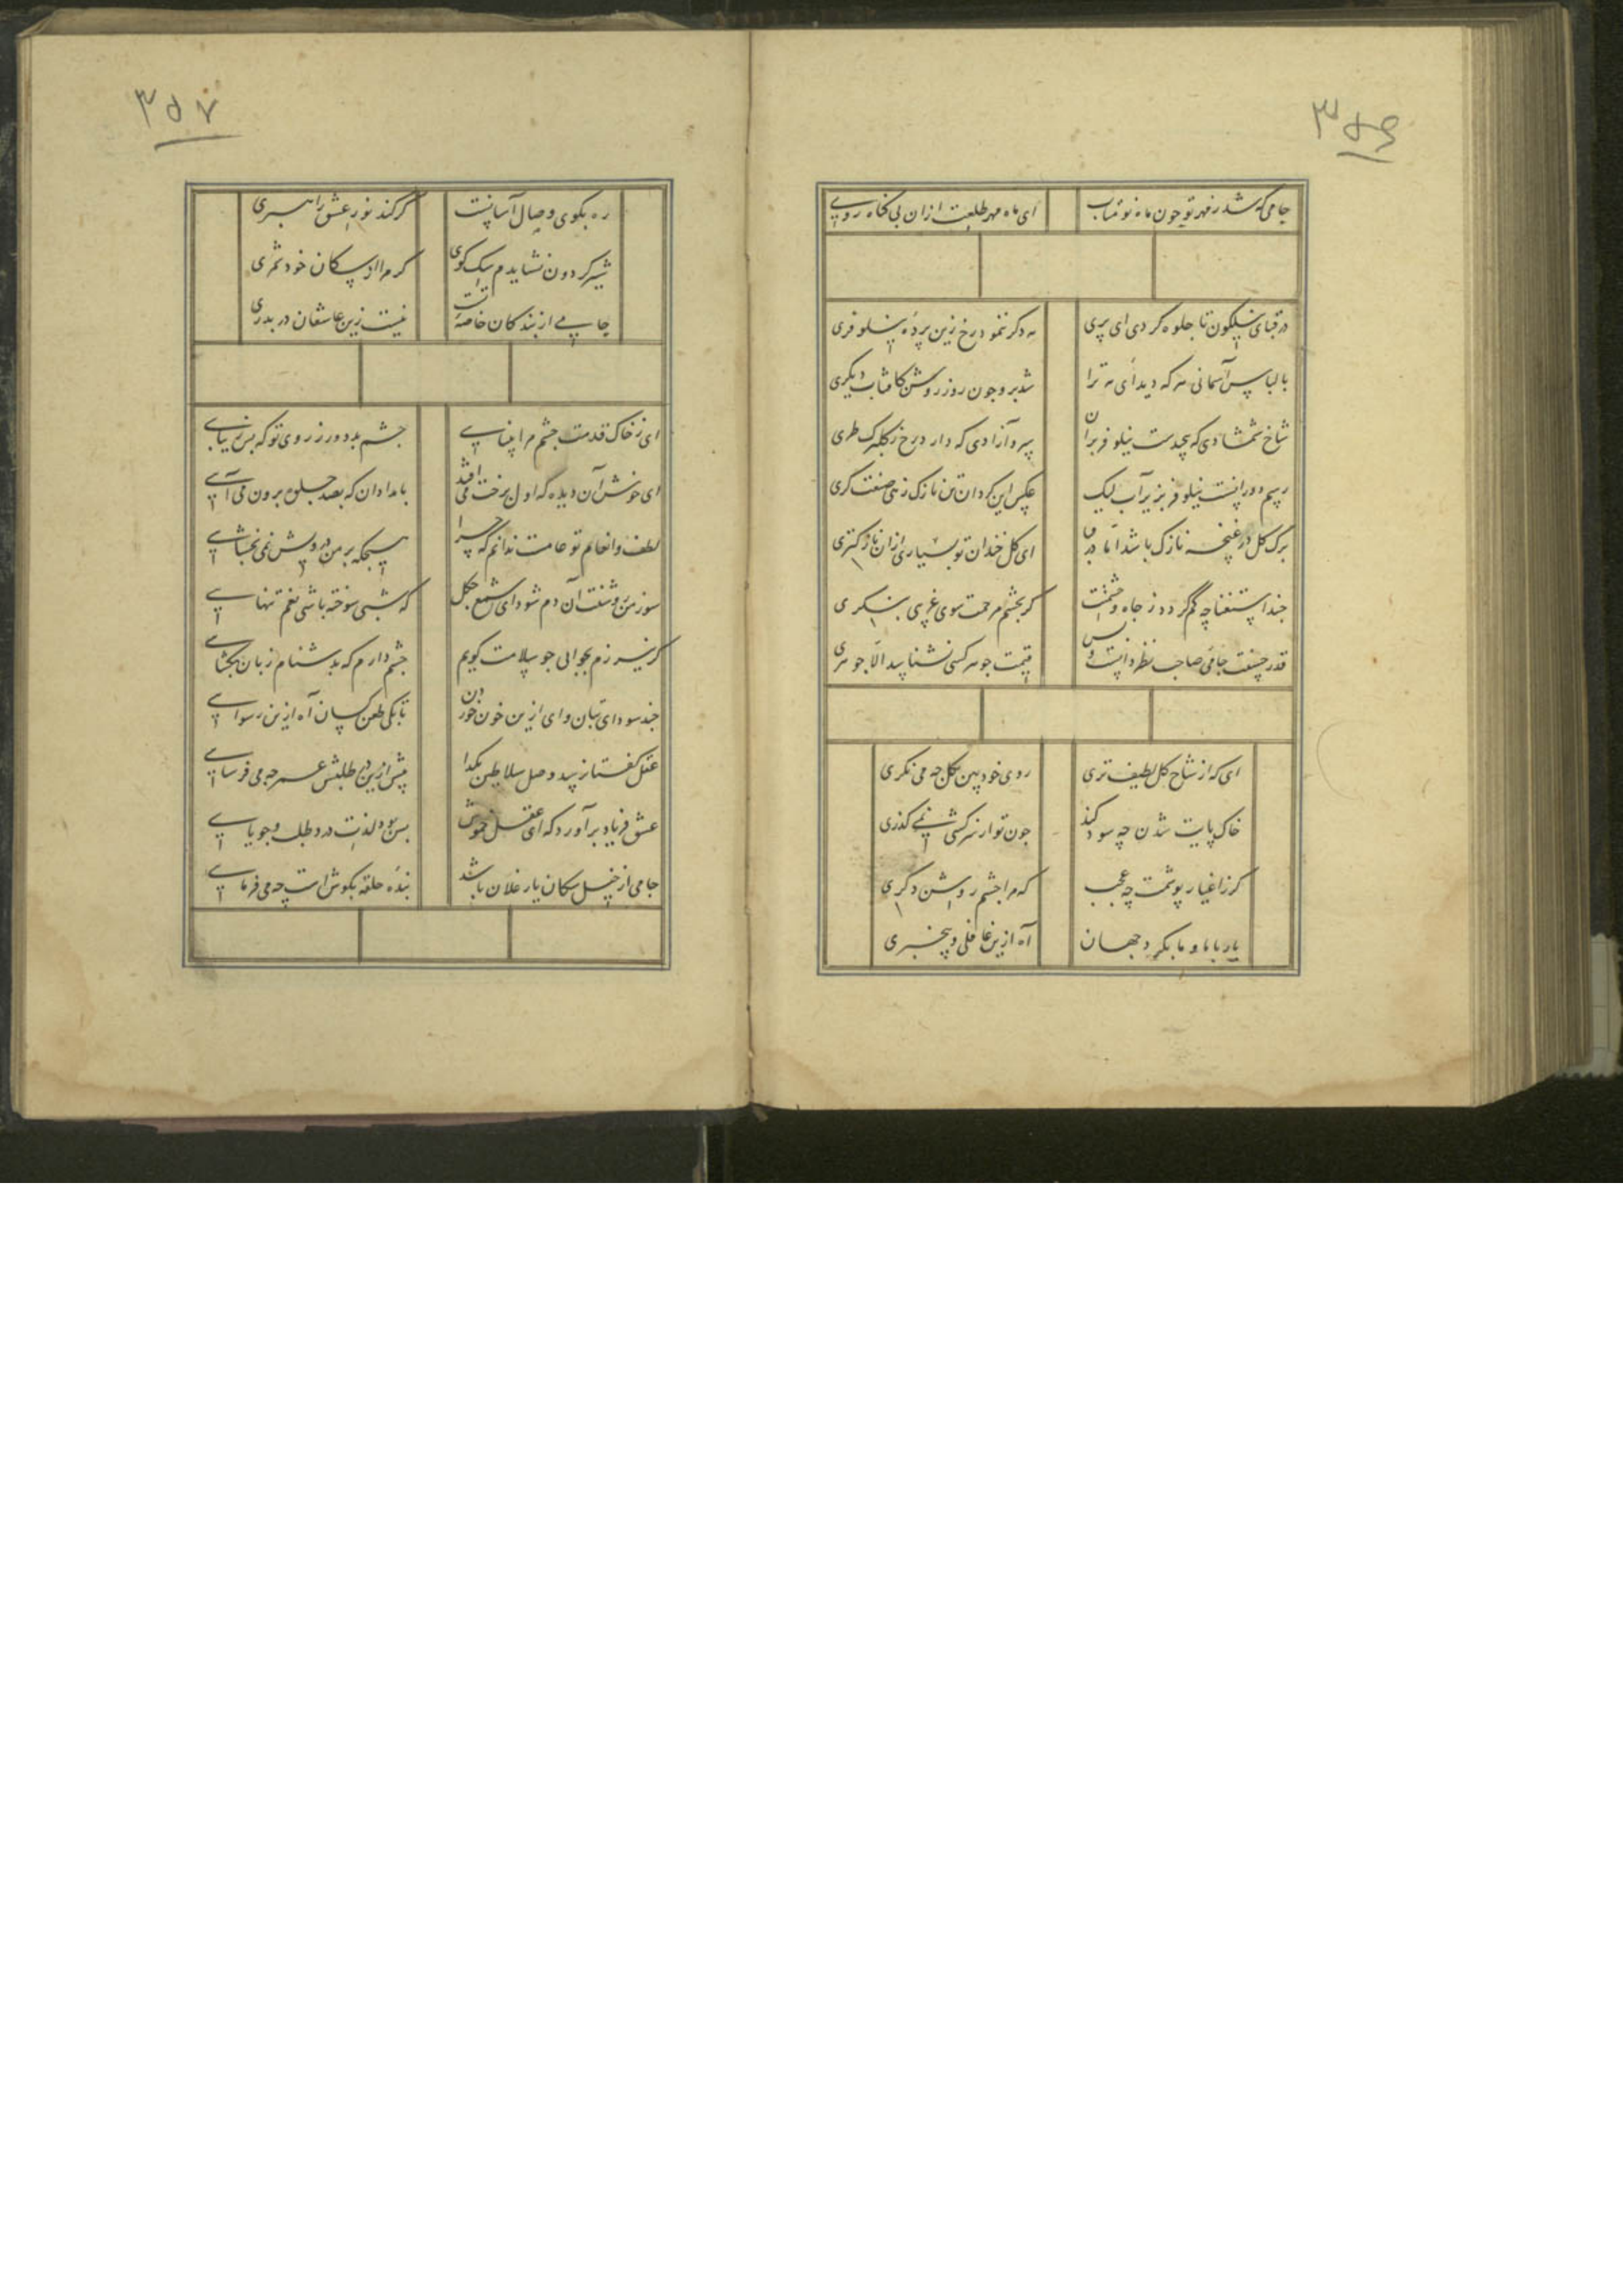 ۳۵۶
جامی که شد ز مهر تو چون ماه نو متاب
ای ماه مهر طلعت ازان بی کناه روی
در قبای نیلکون تا جلوه کردی ای پری
مه دکر ننمود رخ زین پردهٔ نیلوفری
با لباس آسمانی هر که دید ای مه ترا
شد برو چون روز روشن کافتاب دیکری
شاخ شمشادی که پیچدست نیلوفر بران
سرو آزادی که دارد رخ ز کلبرک طری
رسم دورانست نیلوفر بزیر آب لیک
عکس این کرد آن تن نازک زهی صنعت کری
برک کل در غنچه نازک باشد اما در قبا
ای کل خندان تو بسیاری ازان نازکتری
چند استغنا چه کم کردد ز جاه و حشمتت
کر بچشم مرحمت سوی غریبی بنکری
قدر حسنت جامی صاحب نظر دانست و بس
قیمت جوهر کسی نشناسد الا جوهری
ای که از شاخ کل لطیف تری
روی خود بین بکل چه می نکری
خاک پایت شدن چه سود کند
چون تو از سرکشی نمی کذری
کر ز اغیار پوشمت چه عجب
که مرا چشم روشن دکری
یار با ما و ما بکرد جهان
آه ازین غافلی و بیخبری
۳۵۷
ره بکوی وصال آسانست
کر کند نور عشق راهبری
شیر کردون نشایدم سک کوی
کر مرا از سکان خود شمری
جامی از بندکان خاصهٔ تست
نیست زین عاشقان دربدری
ای ز خاک قدمت چشم مرا بینایی
چشم بد دور ز روی تو که بس زیبایی
ای خوش آن دیده که اول برخت می افتد
بامدادان که بصد جلوه برون می آیی
لطف و انعام تو عامست ندانم که چرا
هیچکه بر من درویش نمی بخشایی
سوز من روشنت آن دم شود ای شمع چکل
که شبی سوخته باشی بغم تنهایی
کر نیرزم بجوابی چو سلامت کویم
چشم دارم که بدشنام زبان بکشایی
چند سودای بتان وای ازین خون خوردن
تا بکی طعن کسان آه ازین رسوایی
عقل کفتا نرسد وصل سلاطین بکدا
بیش ازین در طلبش عمر چه می فرسایی
عشق فریاد برآورد که ای عقل خموش
بس بود لذت درد طلب و جویایی
جامی از خیل سکان یار غلان باشد
بندهٔ حلقه بکوش است چه می فرمایی